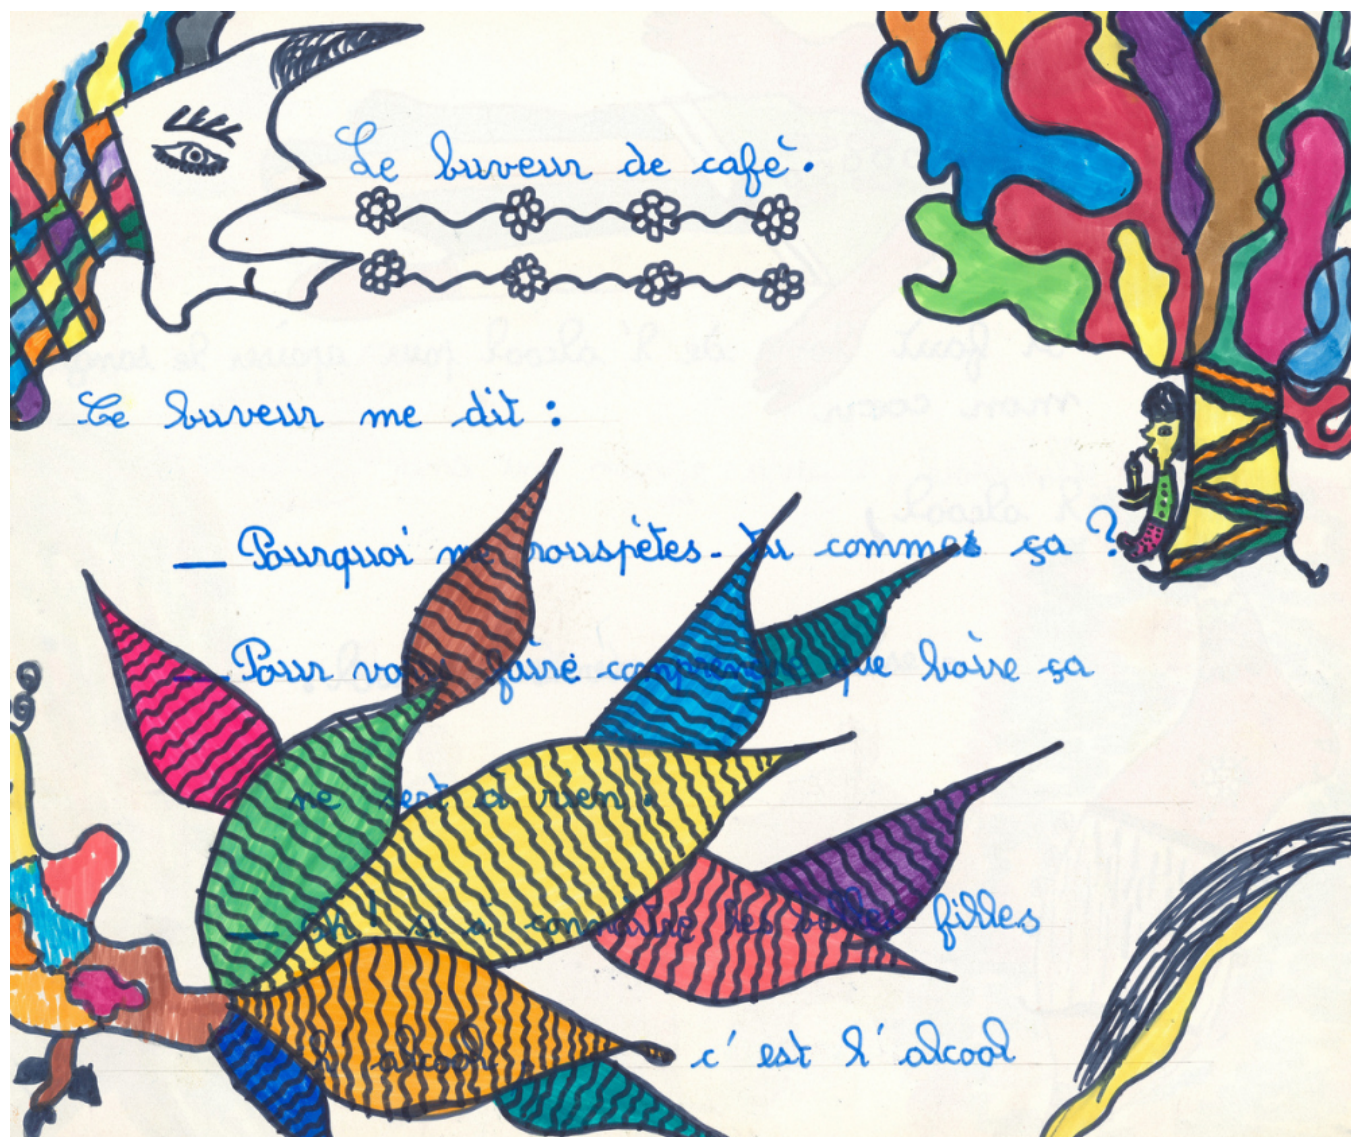 Le buveur de café.
Le buveur me dit :
— Pourquoi me rouspètes-tu comme ça ?
— Pour vous faire comprendre que boire ça
ne sert à rien.
— Oh ! si à connaître les belles filles
l'alcool c'est l'alcool